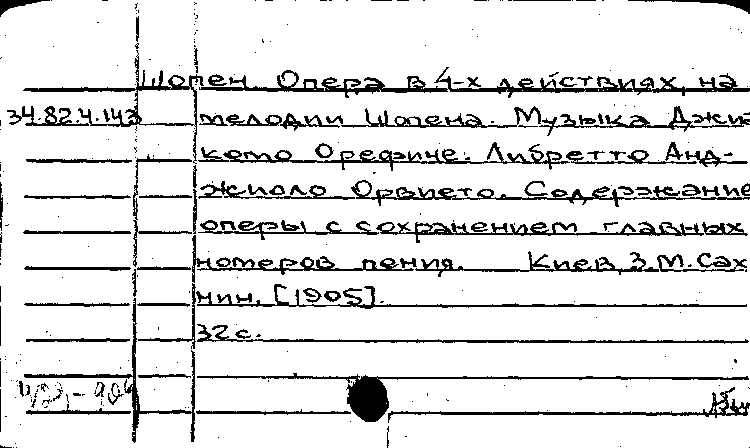 Шопен. Опера в 4-х действиях, на
34.82.4.143 мелодии Шопена. Музыка Джиа
комо Орефиче. Либретто Анд-
жиоло Орвието. Содержание
оперы с сохранением главных
номеров пения. Киев, З.М. Сах
нин. [1905].
32 с.